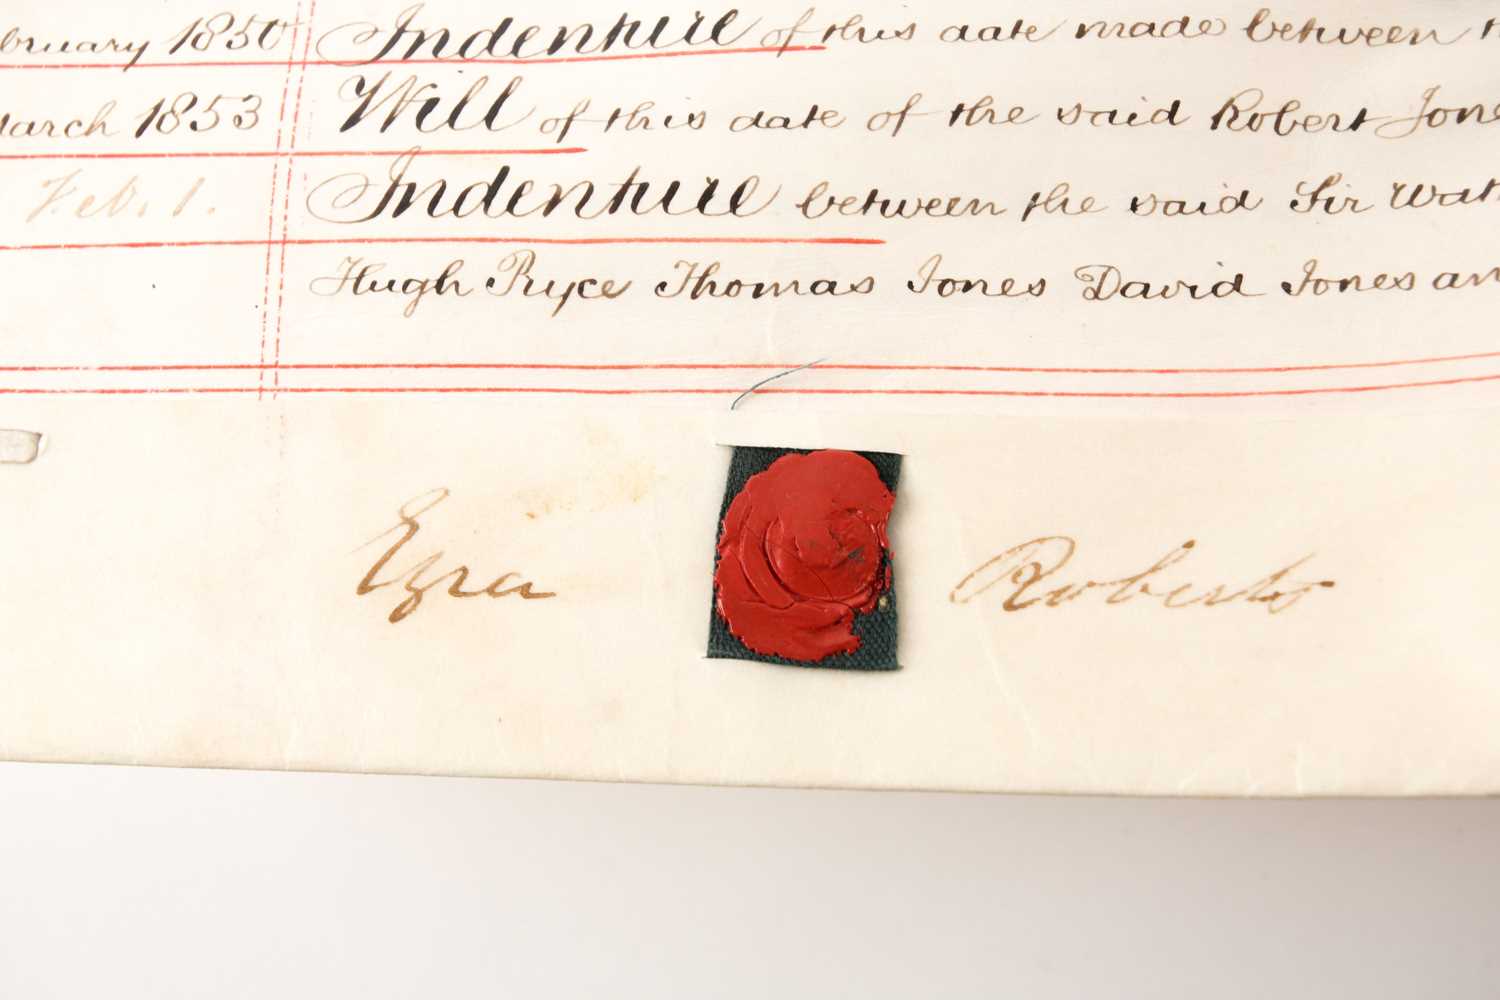 bruary 1850 Indenture of this date made between
March 1853 Will of this date of the said Robert Jone
Feb. 1. Indenture between the said Sir Wat
Hugh Pryce Thomas Jones David Jones an
Ezra Roberts